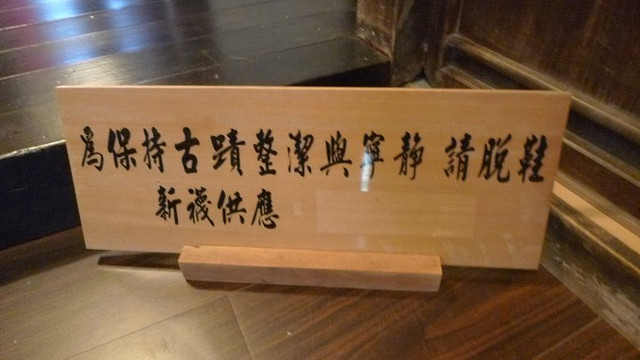 為保持古蹟整潔與寧靜 請脫鞋
新襪供應